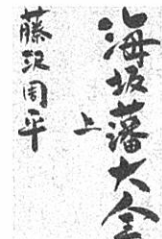 海坂藩大全
上
藤沢周平